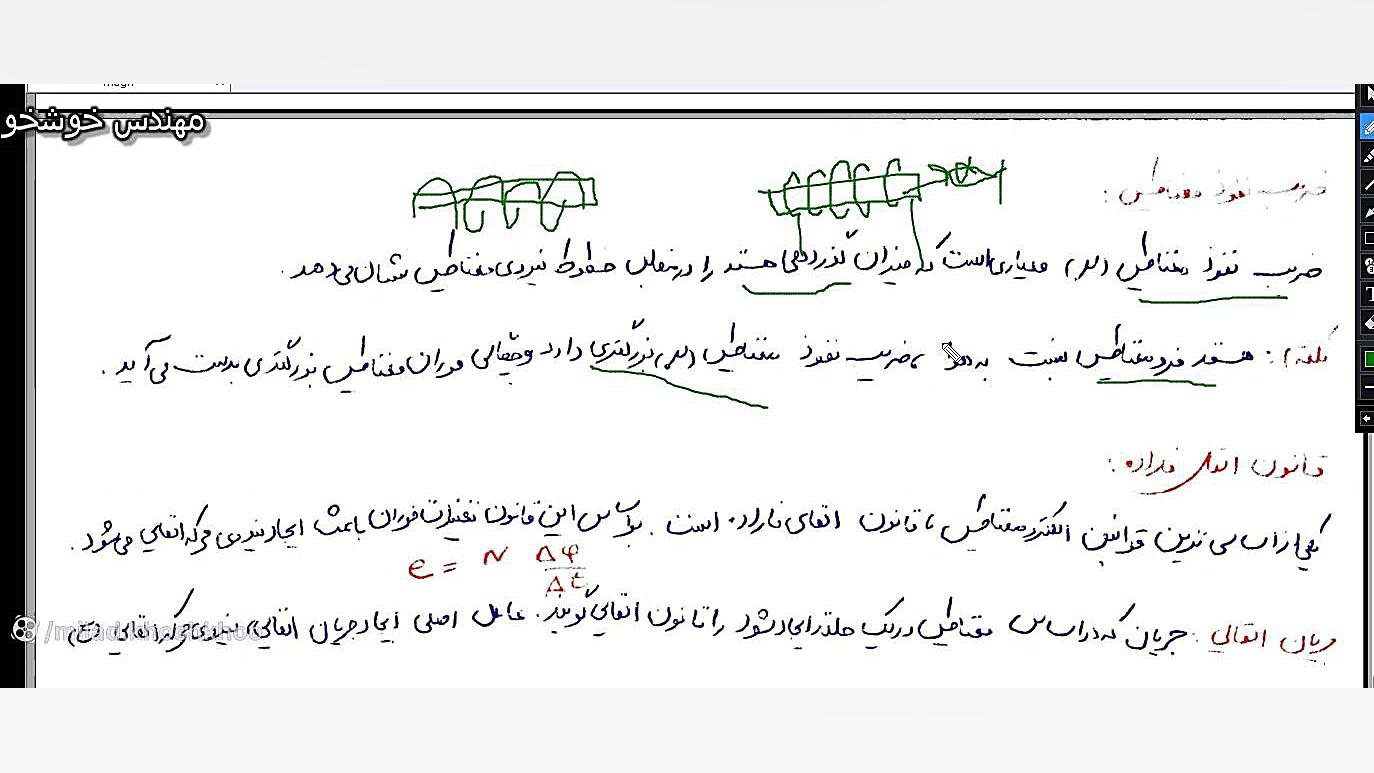 مهندس خوشخو
ضریب نفوذ مغناطیس :
ضریب نفوذ مغناطیس (μ) معیاری است که میزان گذردهی هسته را در مقابل خطوط نیروی مغناطیس نشان می‌دهد .
نکته) : هسته فرومغناطیس نسبت به هوا ، ضریب نفوذ مغناطیس (μ) بزرگتری دارد و چگالی فوران مغناطیس بزرگتری بدست می‌آید .
قانون القای فاراده :
یکی از اساسی ترین قوانین الکترومغناطیس ، قانون القای فاراده است . بر اساس این قانون تغییرات فوران باعث ایجاد نیروی محرکه القایی می‌شود .
e = N Δφ / Δt
جریان القایی : جریان که در اساس مغناطیس در یک حلقه ایجاد شود را قانون القایی گویند . عامل اصلی ایجاد جریان القایی، نیروی محرکه القایی